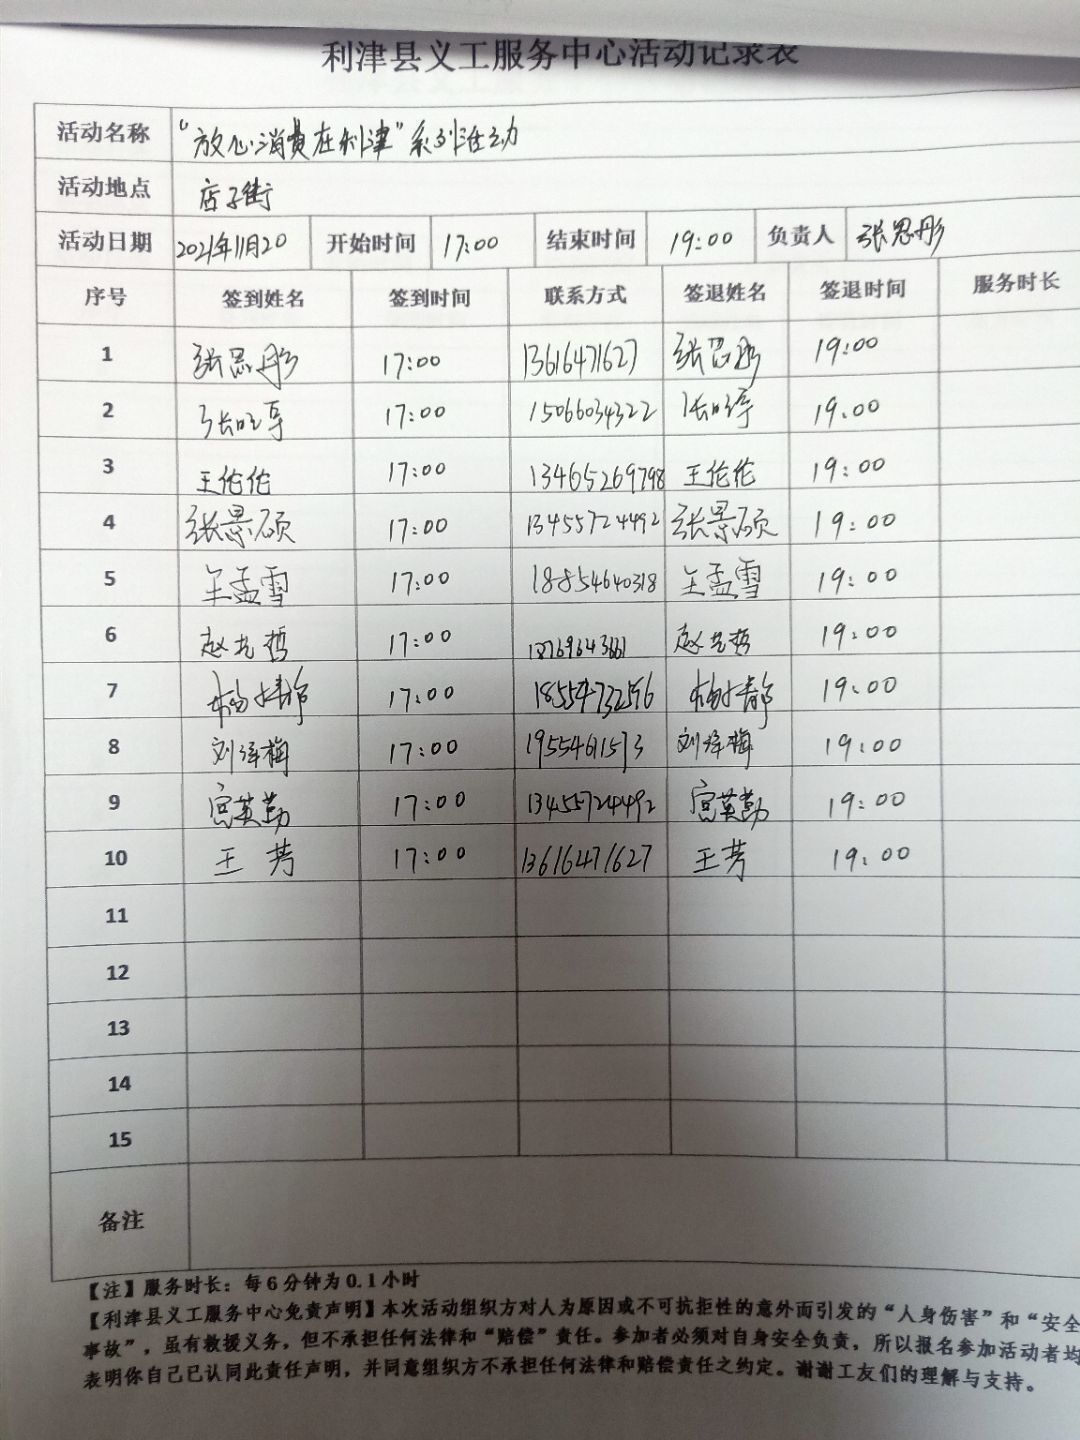 利津县义工服务中心活动记录表
活动名称 “放心消费在利津”系列活动
活动地点 店子街
活动日期 2021年11月20 开始时间 17:00 结束时间 19:00 负责人 张思彤
序号 签到姓名 签到时间 联系方式 签退姓名 签退时间 服务时长
1 张思彤 17:00 13616471627 张思彤 19:00
2 17:00 15066034322 19:00
3 王伦伦 17:00 13465269798 王伦伦 19:00
4 张景硕 17:00 13455724492 张景硕 19:00
5 王孟雪 17:00 18854640318 王孟雪 19:00
6 赵艺哲 17:00 赵艺哲 19:00
7 杨婧 17:00 19:00
8 刘泽梅 17:00 19554611573 刘泽梅 19:00
9 宫英勤 17:00 13455724492 宫英勤 19:00
10 王芳 17:00 13616471627 王芳 19:00
11
12
13
14
15
备注
【注】服务时长：每6分钟为0.1小时
【利津县义工服务中心免责声明】本次活动组织方对人为原因或不可抗拒性的意外而引发的“人身伤害”和“安全
事故”，虽有救援义务，但不承担任何法律和“赔偿”责任。参加者必须对自身安全负责，所以报名参加活动者均
表明你自己已认同此责任声明，并同意组织方不承担任何法律和赔偿责任之约定。谢谢工友们的理解与支持。